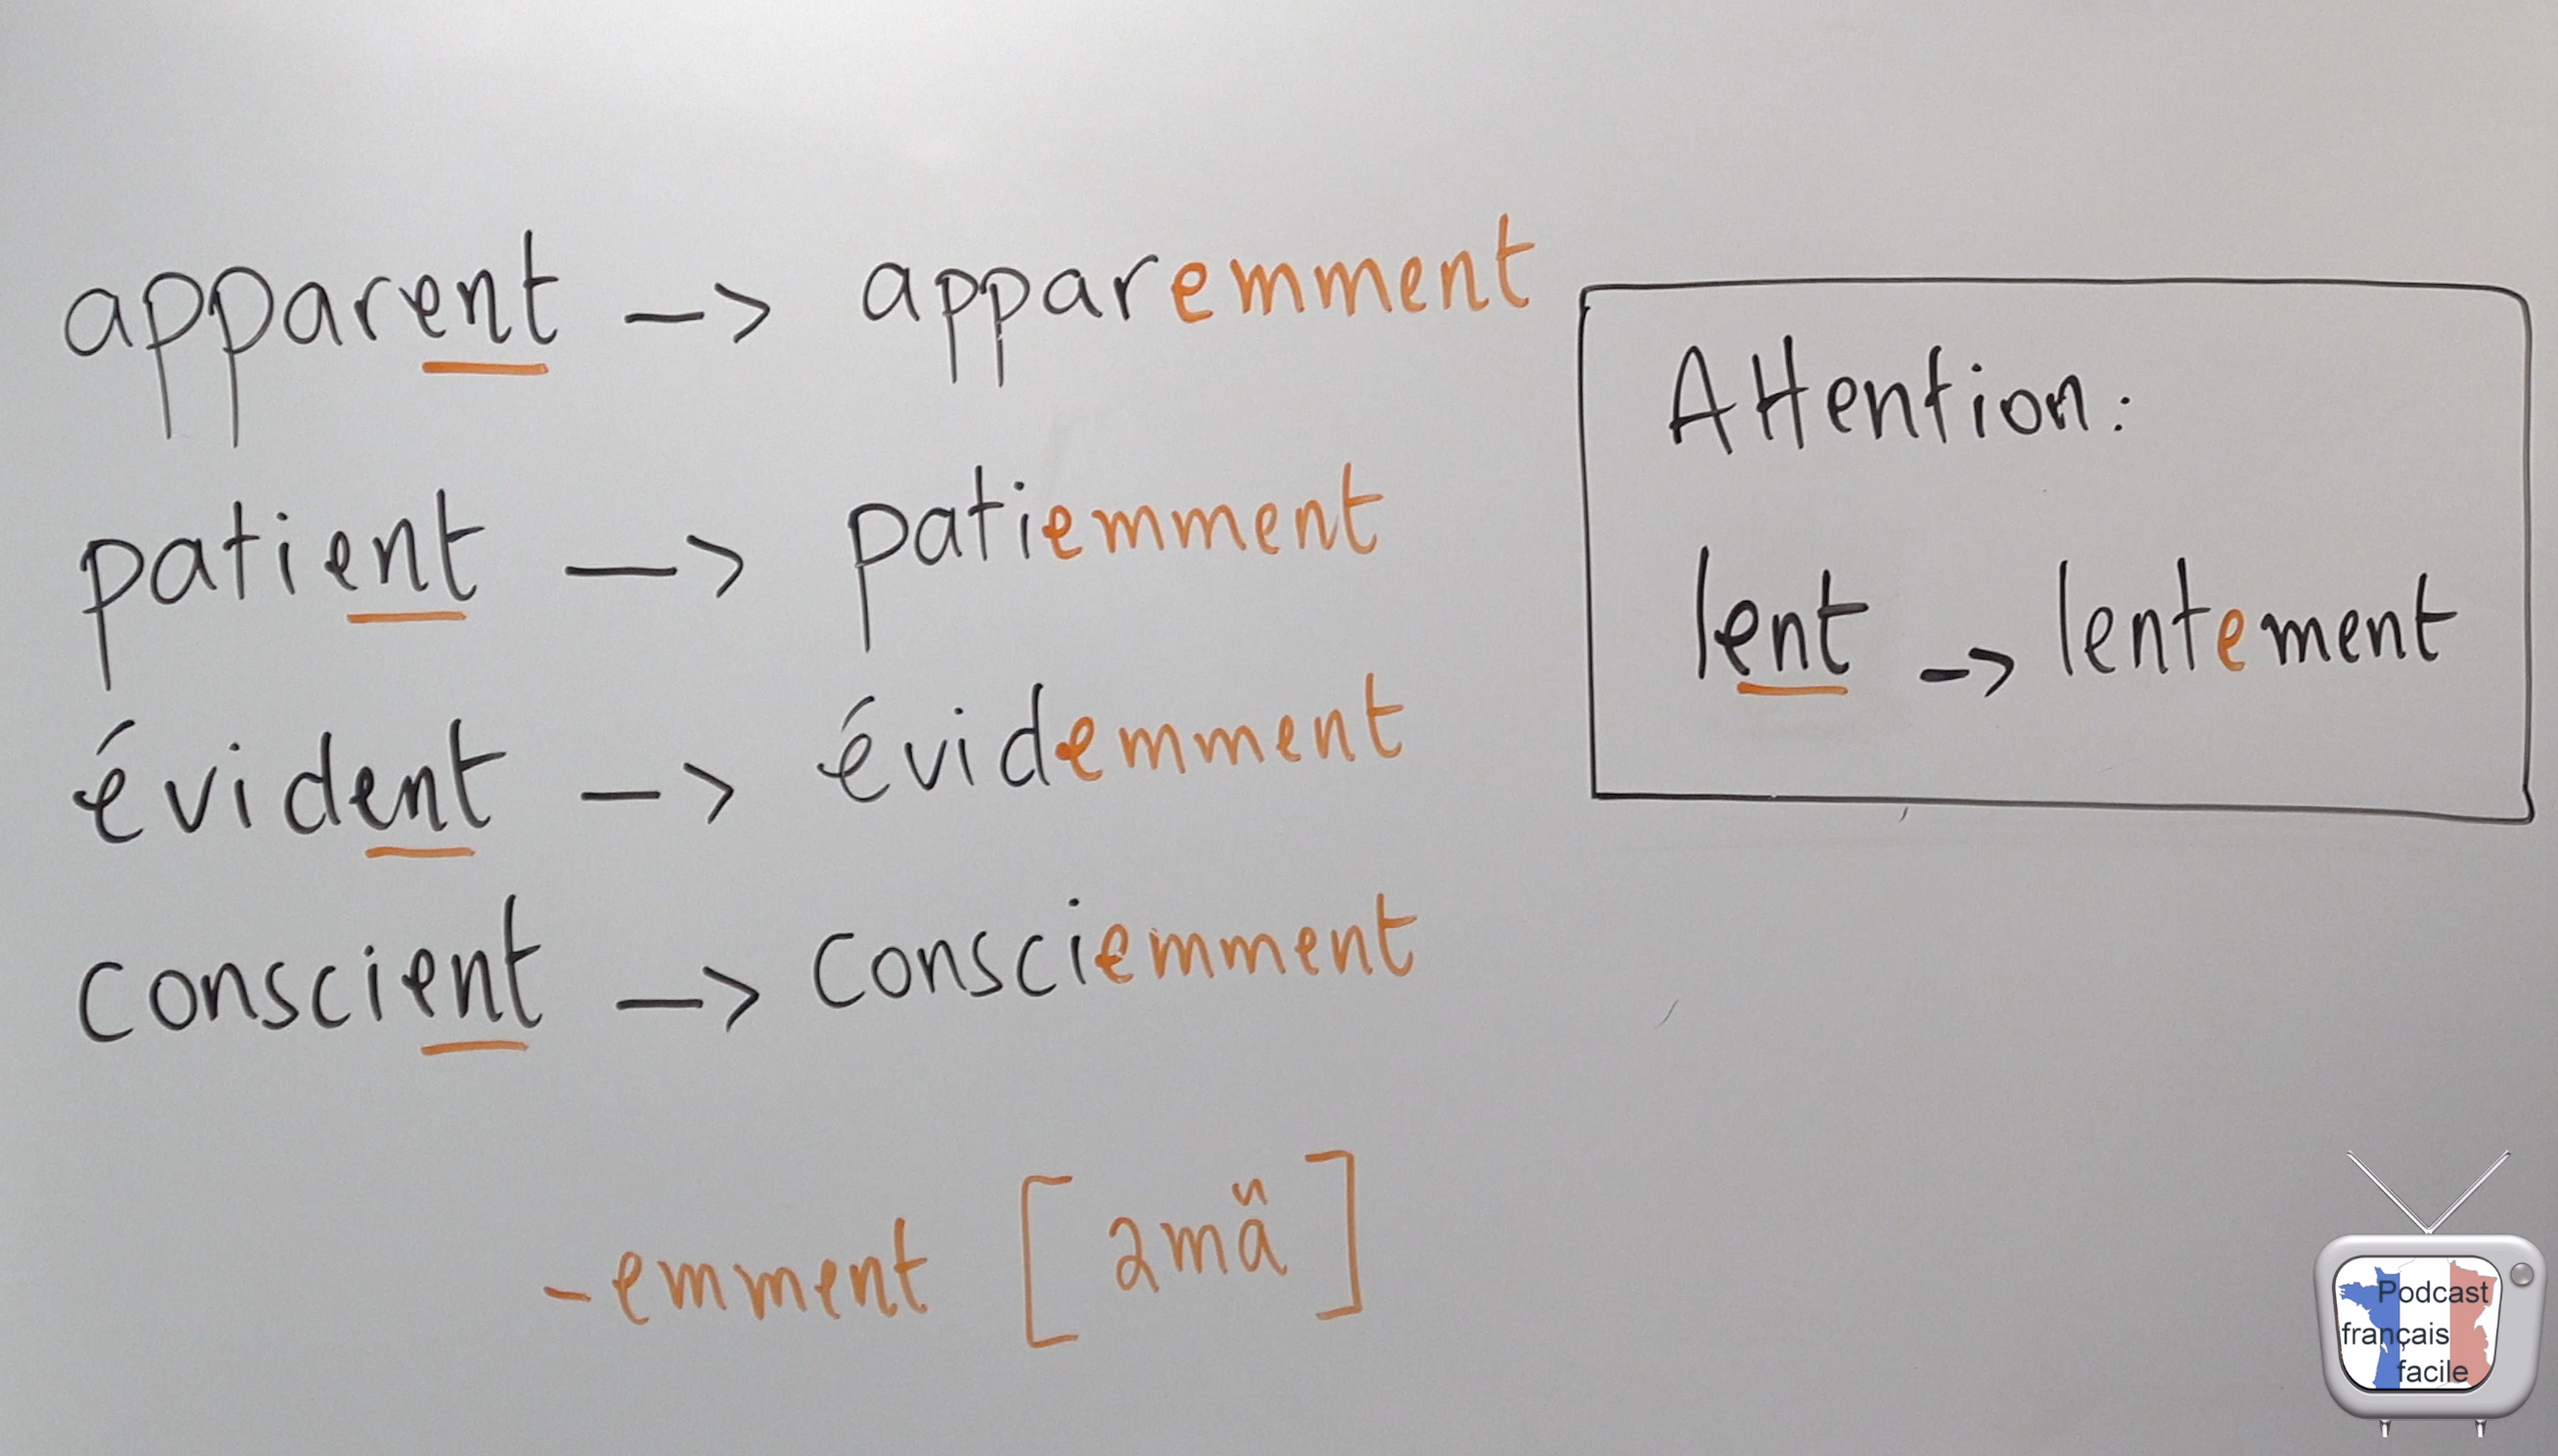 apparent —> apparemment
patient —> patiemment
évident —> évidemment
conscient —> consciemment
-emment [amã]
Attention:
lent -> lentement
Podcast
français
facile